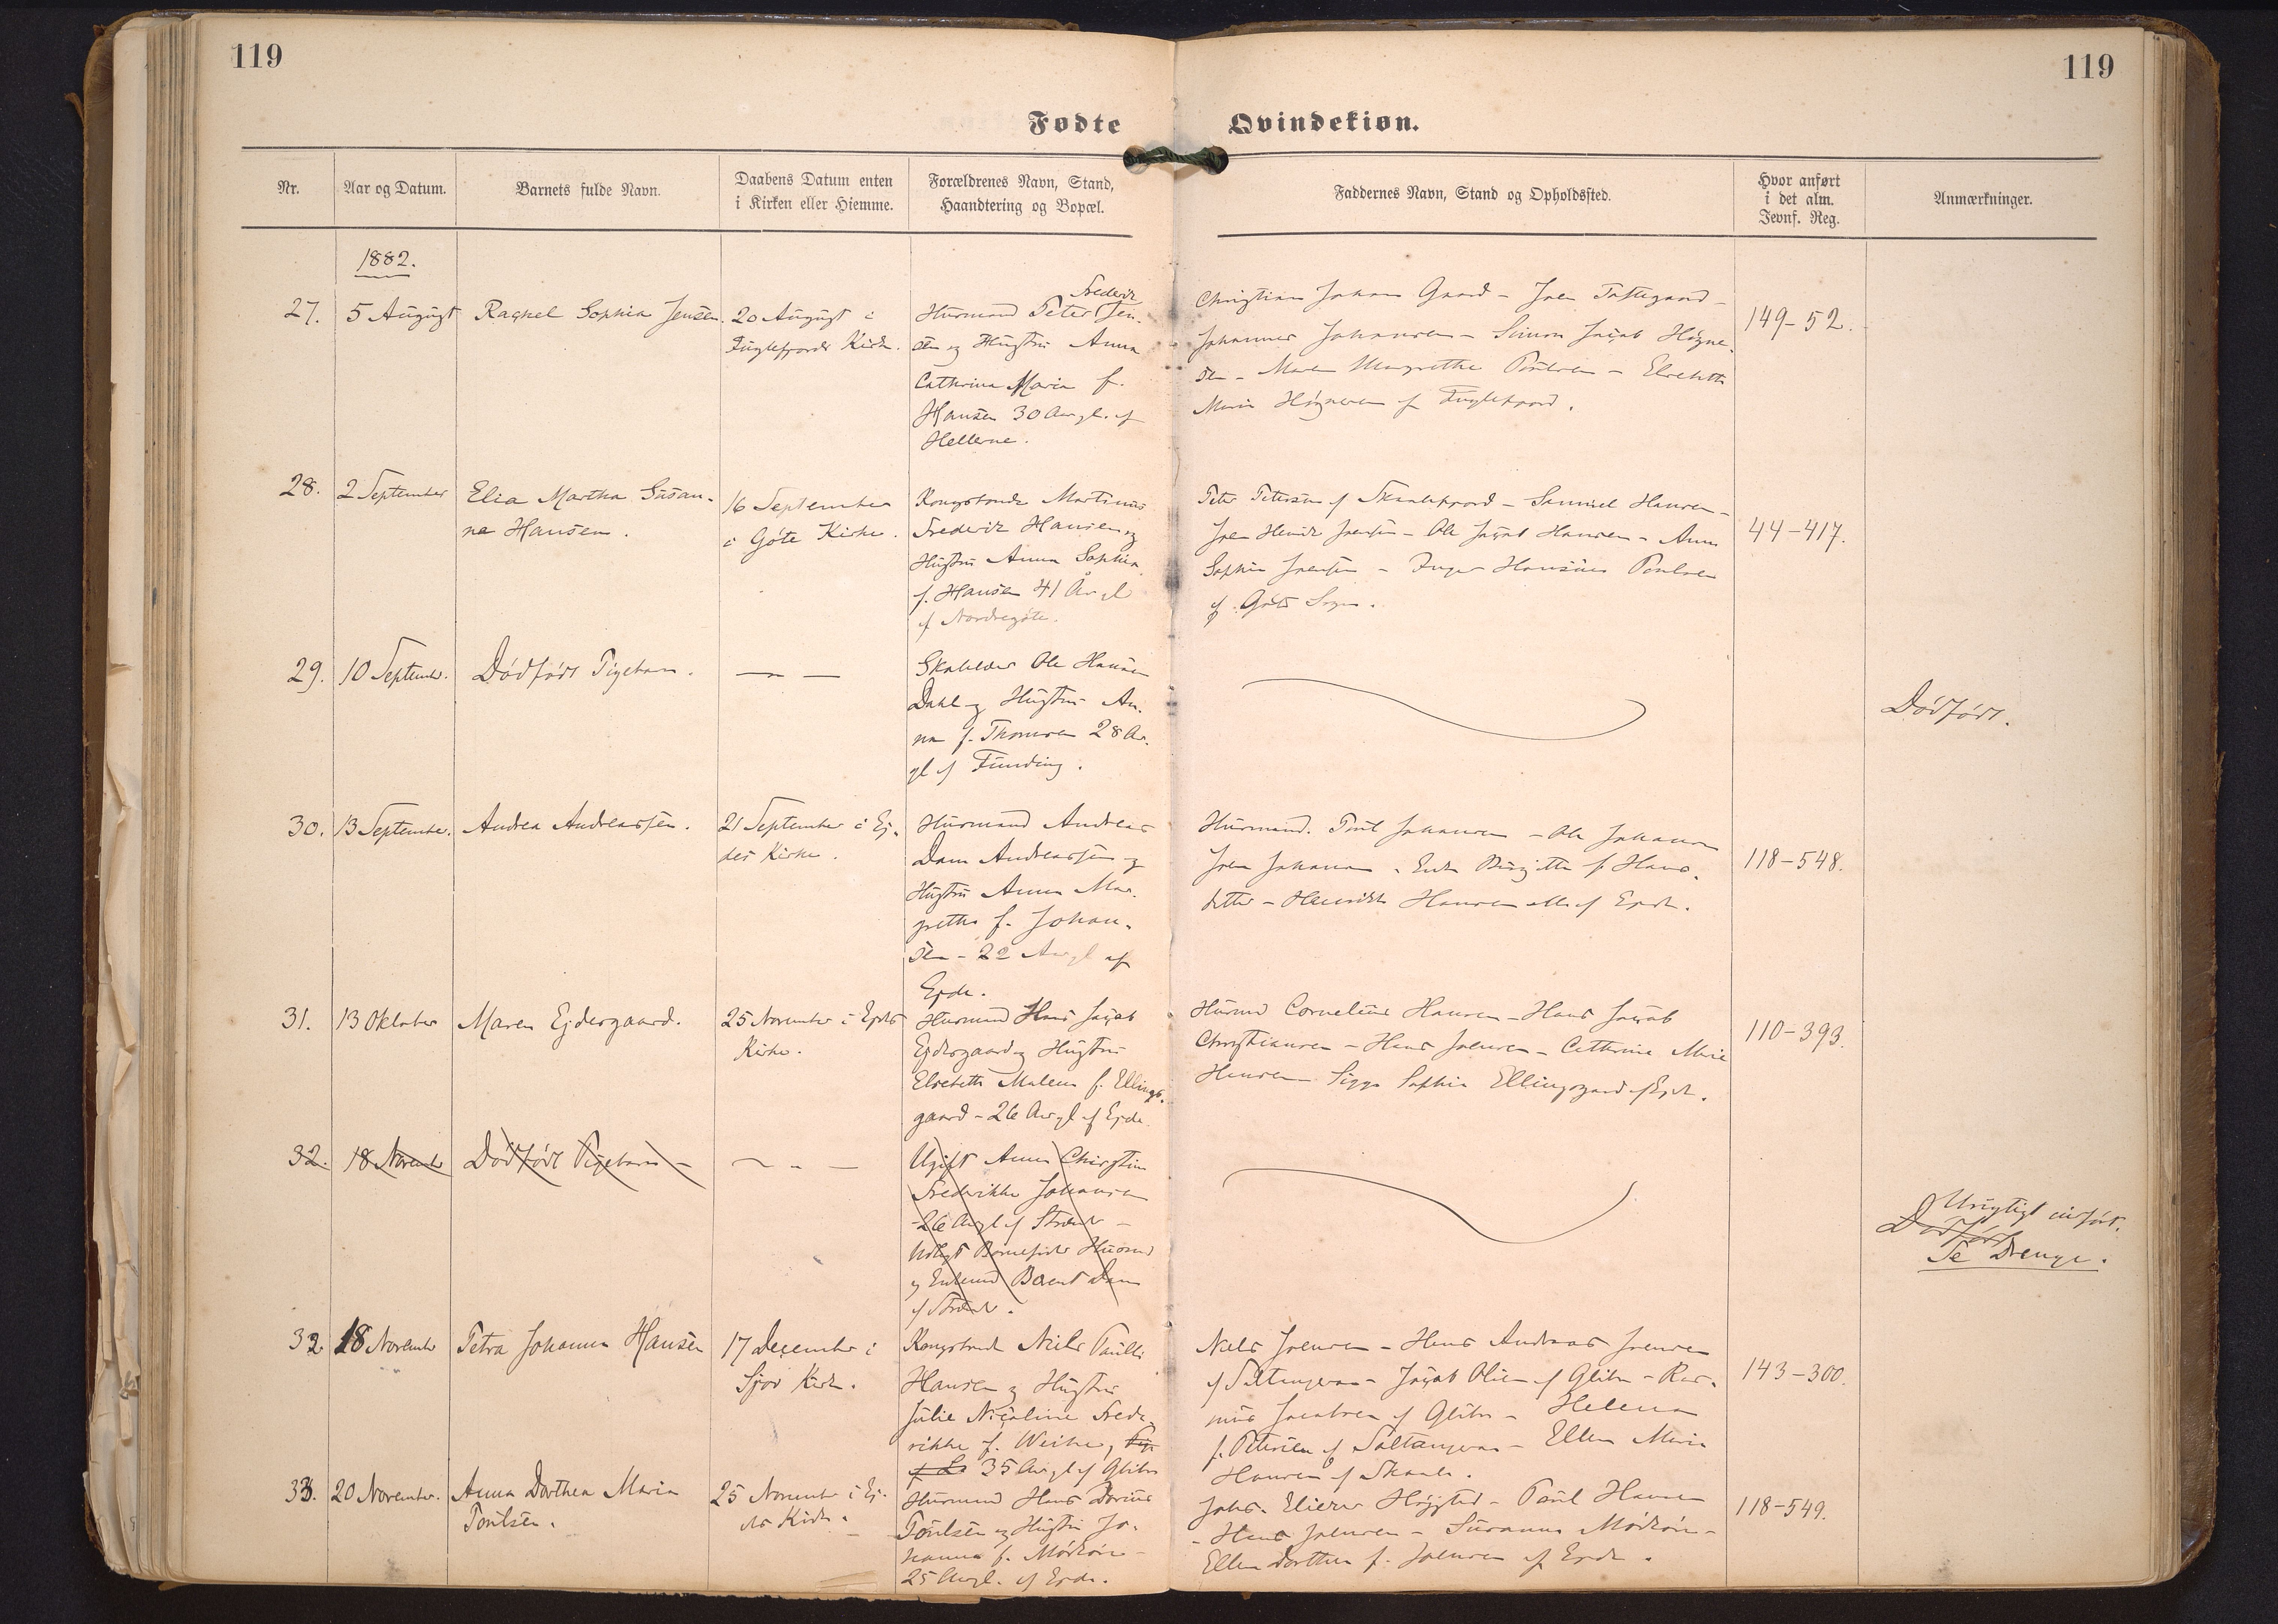 119
119
Fødte
Qvindekiøn.
Nr.
Aar og Datum.
Barnets fulde Navn.
Daabens Datum enten
i Kirken eller Hiemme.
Forældrenes Navn, Stand,
Haandtering og Bopæl.
Faddernes Navn, Stand og Opholdssted.
Hvor anført
i det alm.
Jevnf. Reg.
Anmærkninger.
1882.
27.
5 August
Rachel Sophia Jensen.
20 August i
Fuglefjords Kirke.
Husmand Peter Frederik Jen-
sen og Hustru Anna
Cathrina Maria f.
Hansen 30 Aar gl. af
Hellerne.
Christian Johan Gaard - Joen
Johannes Johansen - Simon Jacob Høgne-
sen - Maren Margrethe Poulsen - Elsebeth
Maria Høgnesen af Fuglefjord.
149-52.
28.
2 September
Elia Martha Susan-
na Hansen.
16 September
i Gøte Kirke.
Kongsbonde Martinus
Frederik Hansen og
Hustru Anna Sophia
f. Hansen 41 Aar gl
af Nordregøte.
Peter Petersen af Skaalefjord - Samuel Hansen -
Joen Henrik Joensen - Ole Jacob Hansen - Anna
Sophia Joensen - Inger Poulsen
af Gøte Sogn.
44-417.
29.
10 Septembr.
Dødfødt Pigebarn.
Ole Hansen
Dahl og Hustru An-
na f. Thomsen 28 Aar
gl af Funding.
Dødfødt.
30.
13 September.
Andrea Andreassen.
21 September i Ej-
des Kirke.
Husmand Andreas
Dam Andreassen og
Hustru Anna Mar-
grethe f. Johan-
sen - 22 Aar gl af
Ejde.
Husmand Poul Johansen - Ole Johansen
Joen Johansen - Enke Birgitte f. Hans-
datter - Henrikke Hansen alle af Ejde.
118-548.
31.
13 Oktober
Maren Ejdesgaard.
25 November i Ejdes
Kirke.
Husmand Hans Jacob
Ejdesgaard og Hustru
Elsebeth Malene f. Ellings-
gaard - 26 Aar gl af Ejde.
Husmd Cornelius Hansen - Hans Jacob
Christiansen - Hans Joensen - Cathrine Marie
Hansen Sigga Sophia Ellingsgaard af Ejde.
110-393.
32.
18 Novembr
Dødfødt Pigebarn -
Ugift Anna Christine
Frederikke Johansen
26 Aar gl af
Udlagt Barnefader Husmd
og Enkemd Barent Dam
af
Urigtigt indført.
Dødfødt
Se Drenge.
32.
18 Novembr
Petra Johanna Hansen
17 December i
Sjov Kirke.
Kongsbonde Niels Paulli
Hansen og Hustru
Julie Nicoline Frede-
rikke f. Weihe,
35 Aar gl af Glibre
Niels Joensen - Hans Andreas Joensen
af Saltangeraa - Jacob Olsen af Glibre - Ras-
mus Jacobsen af Glibre - Helena
f. Petersen af Saltangeraa - Ellen Maria
Hansen af Skaale.
143-300.
33.
20 November.
Anna Dorthea Maria
Poulsen.
25 Novembr i Ej-
des Kirke.
Husmand Hans Dorius
Poulsen og Hustru Jo-
hanna f. Mørkøre -
25 Aar gl. af Ejde.
Johs. Elieser Højgsted - Poul Hansen
- Hans Joensen - Susanna Mørkøre -
Ellen Dorthea f. Joensen af Ejde.
118-549.